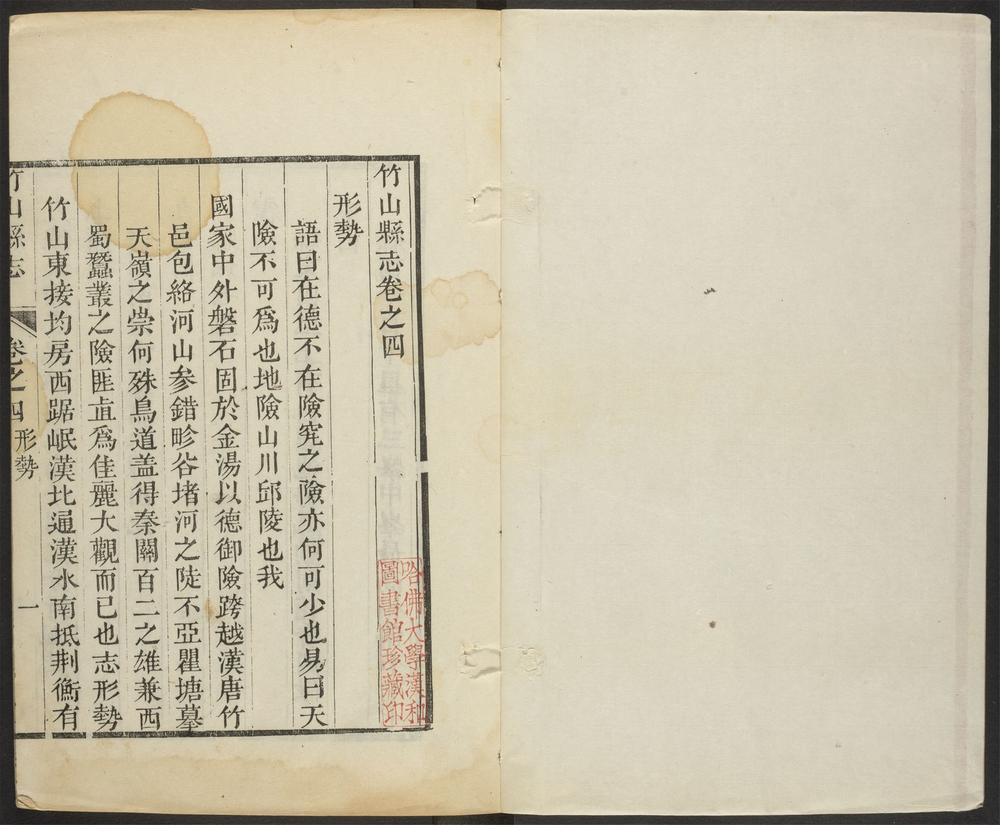 竹山縣志卷之四
形勢
語曰在德不在險究之險亦何可少也易曰天
險不可爲也地險山川邱陵也我
國家中外磐石固於金湯以德御險跨越漢唐竹
邑包絡河山參錯畛谷堵河之陡不亞瞿塘墓
天嶺之崇何殊鳥道盖得秦關百二之雄兼西
蜀蠶叢之險匪直爲佳麗大觀而已也志形勢
竹山東接均房西踞岷漢北通漢水南抵荆衡有
竹山縣志
卷之四
形勢
一
哈佛大學漢和
圖書館珍藏印